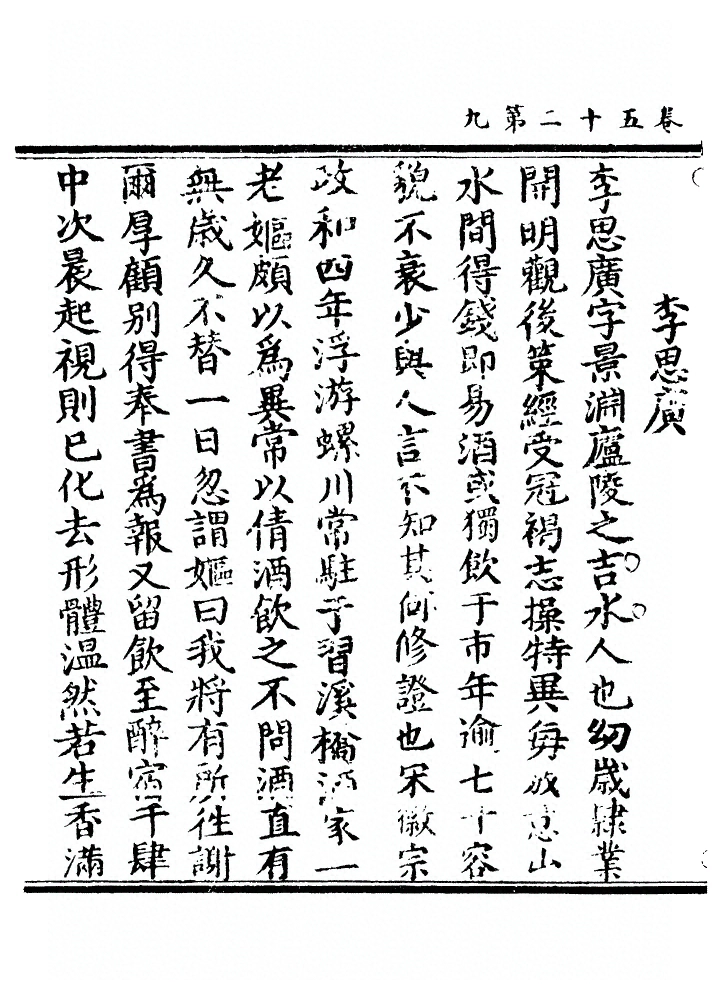 卷五十二第九
李思廣
李思廣字景淵廬陵之吉水人也幼歲隸業
開明觀後策經受冠褐志操特異每放意山
水間得錢即易酒或獨飲于市年逾七十容
貌不衰少與人言不知其何修證也宋徽宗
政和四年浮游螺川常駐于習溪橋酒家一
老嫗頗以為異常以倩酒飲之不問酒直有
無歲久不替一日忽謂嫗曰我將有所往謝
爾厚顧別得奉書為報又留飲至醉宿于肆
中次晨起視則已化去形體溫然若生香滿